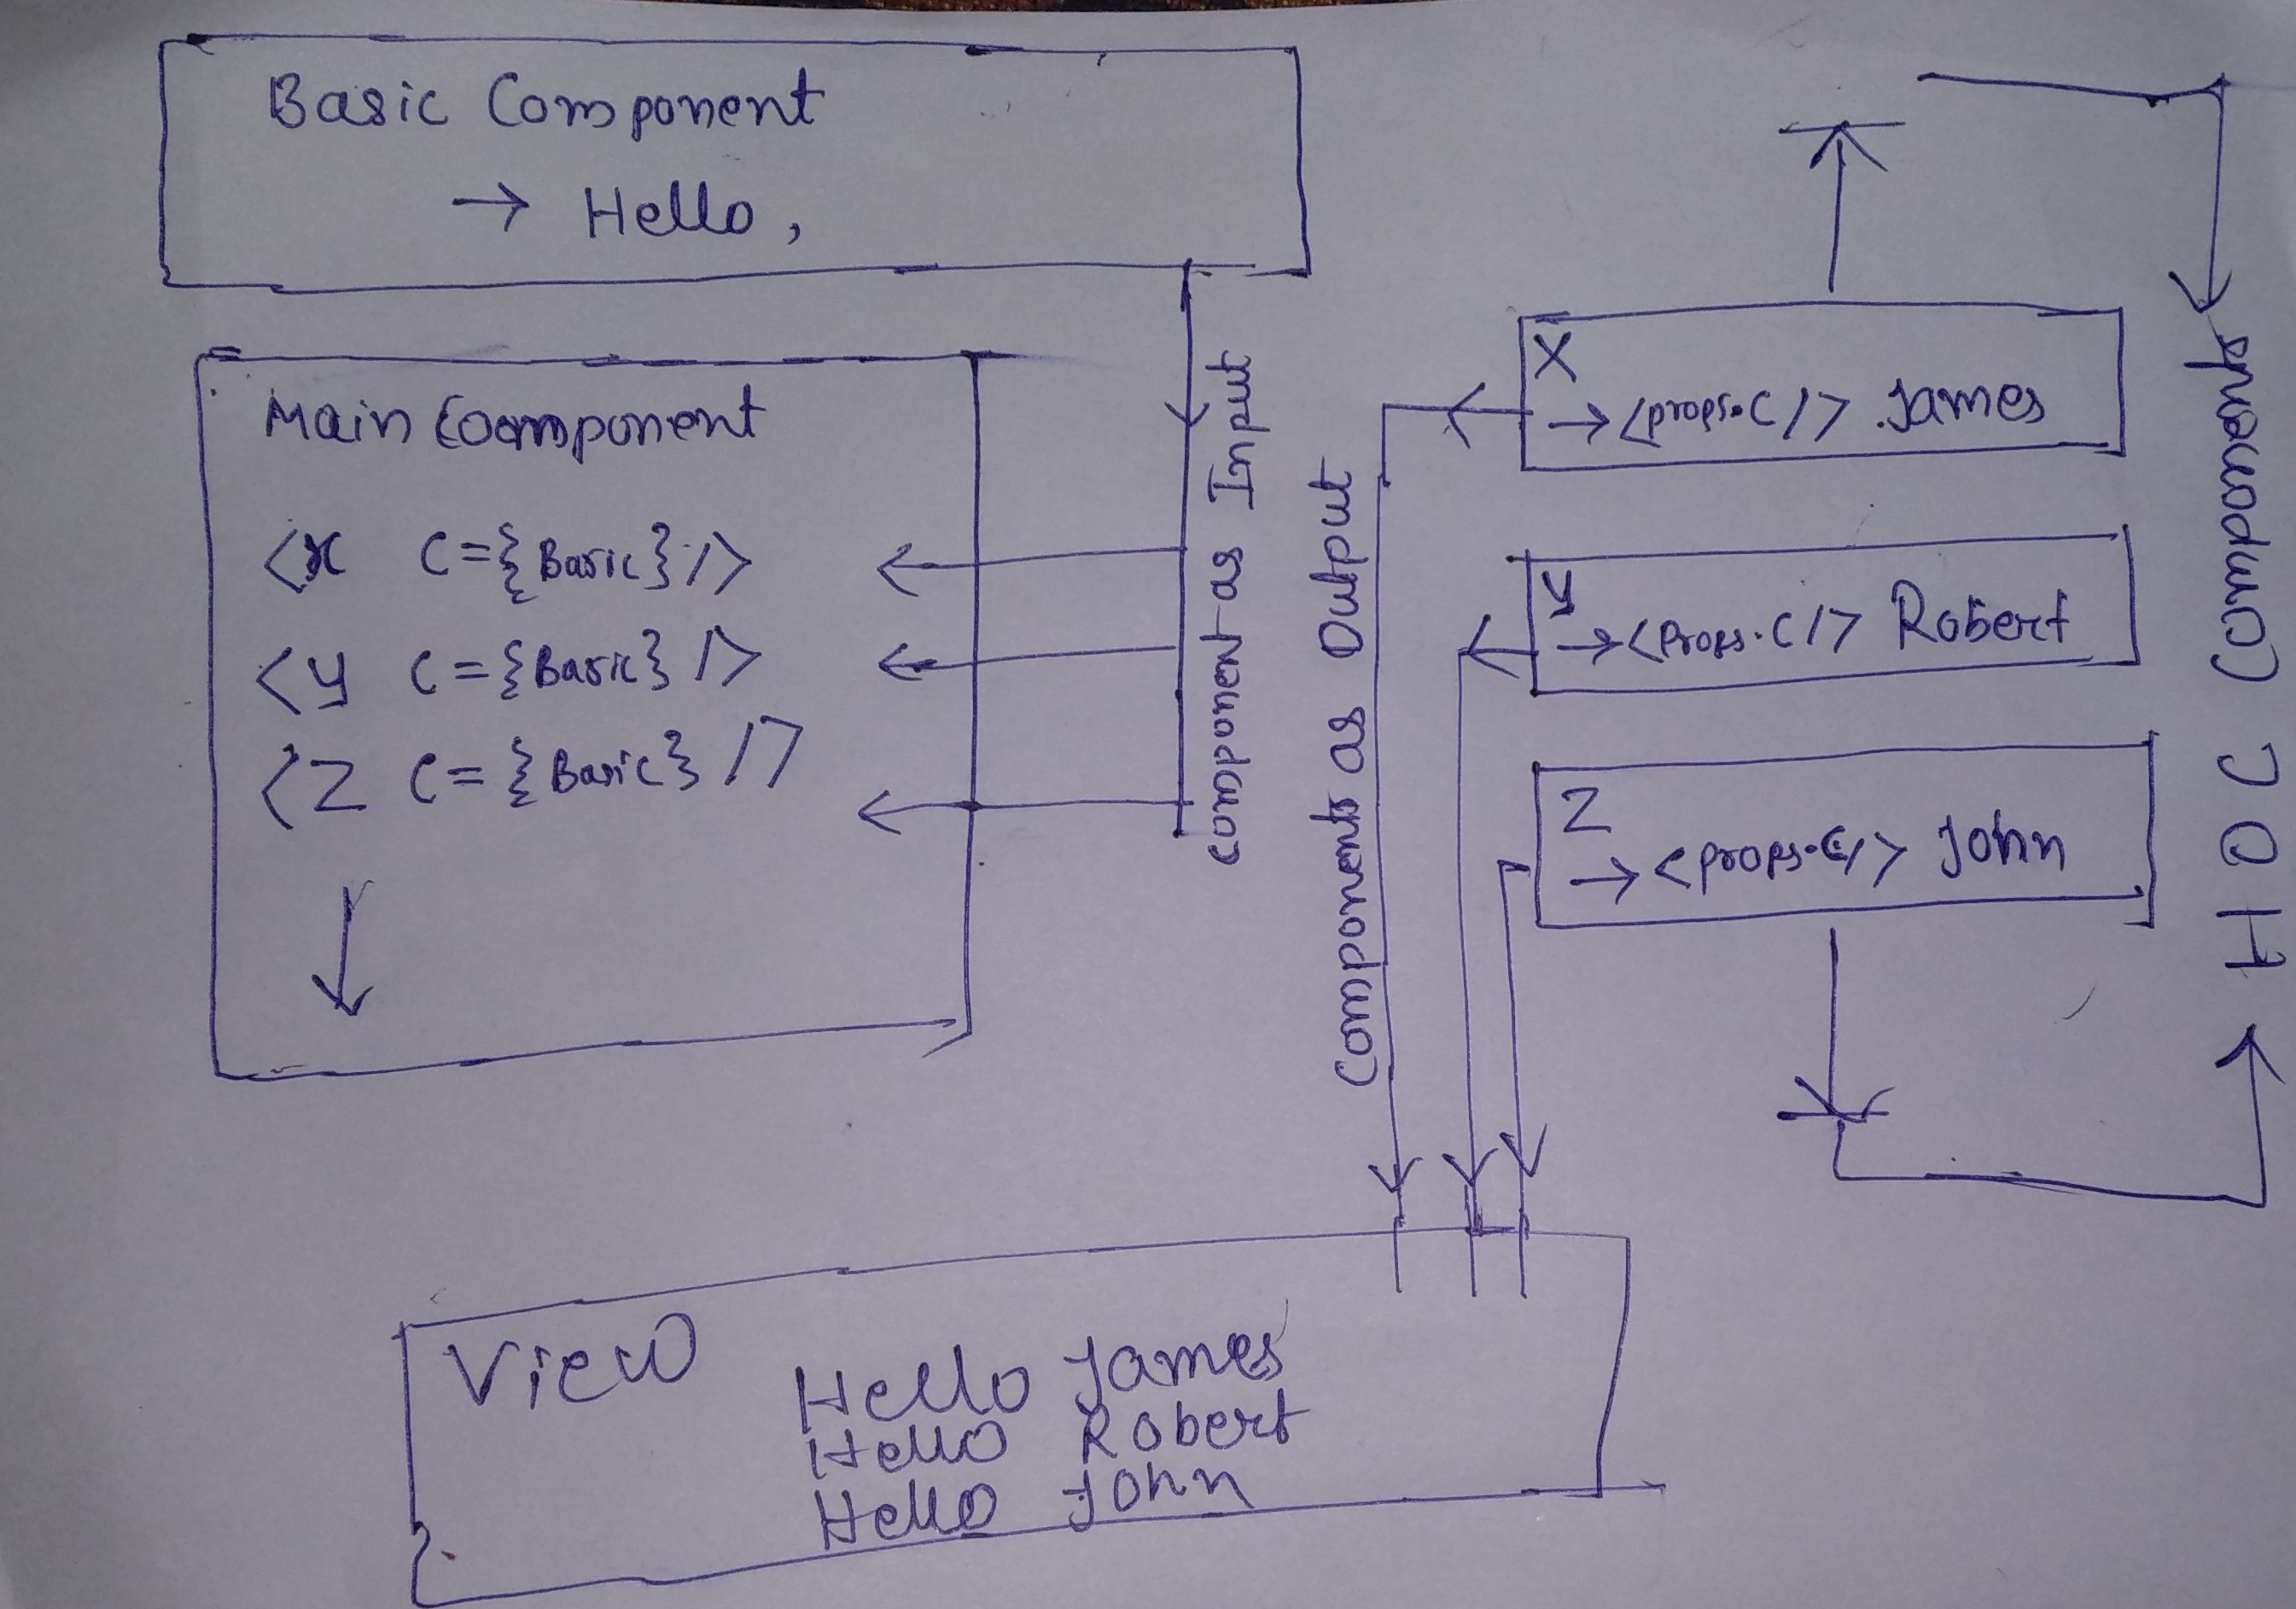 Basic Component
→ Hello,
Main Component
<x C={Basic} />
<y C={Basic} />
<Z C={Basic} />
Component as Input
Components as Output
X
→ <props.C /> James
Y
→ <Props.C /> Robert
Z
→ <props.C /> John
HOC Components
View
Hello James
Hello Robert
Hello John